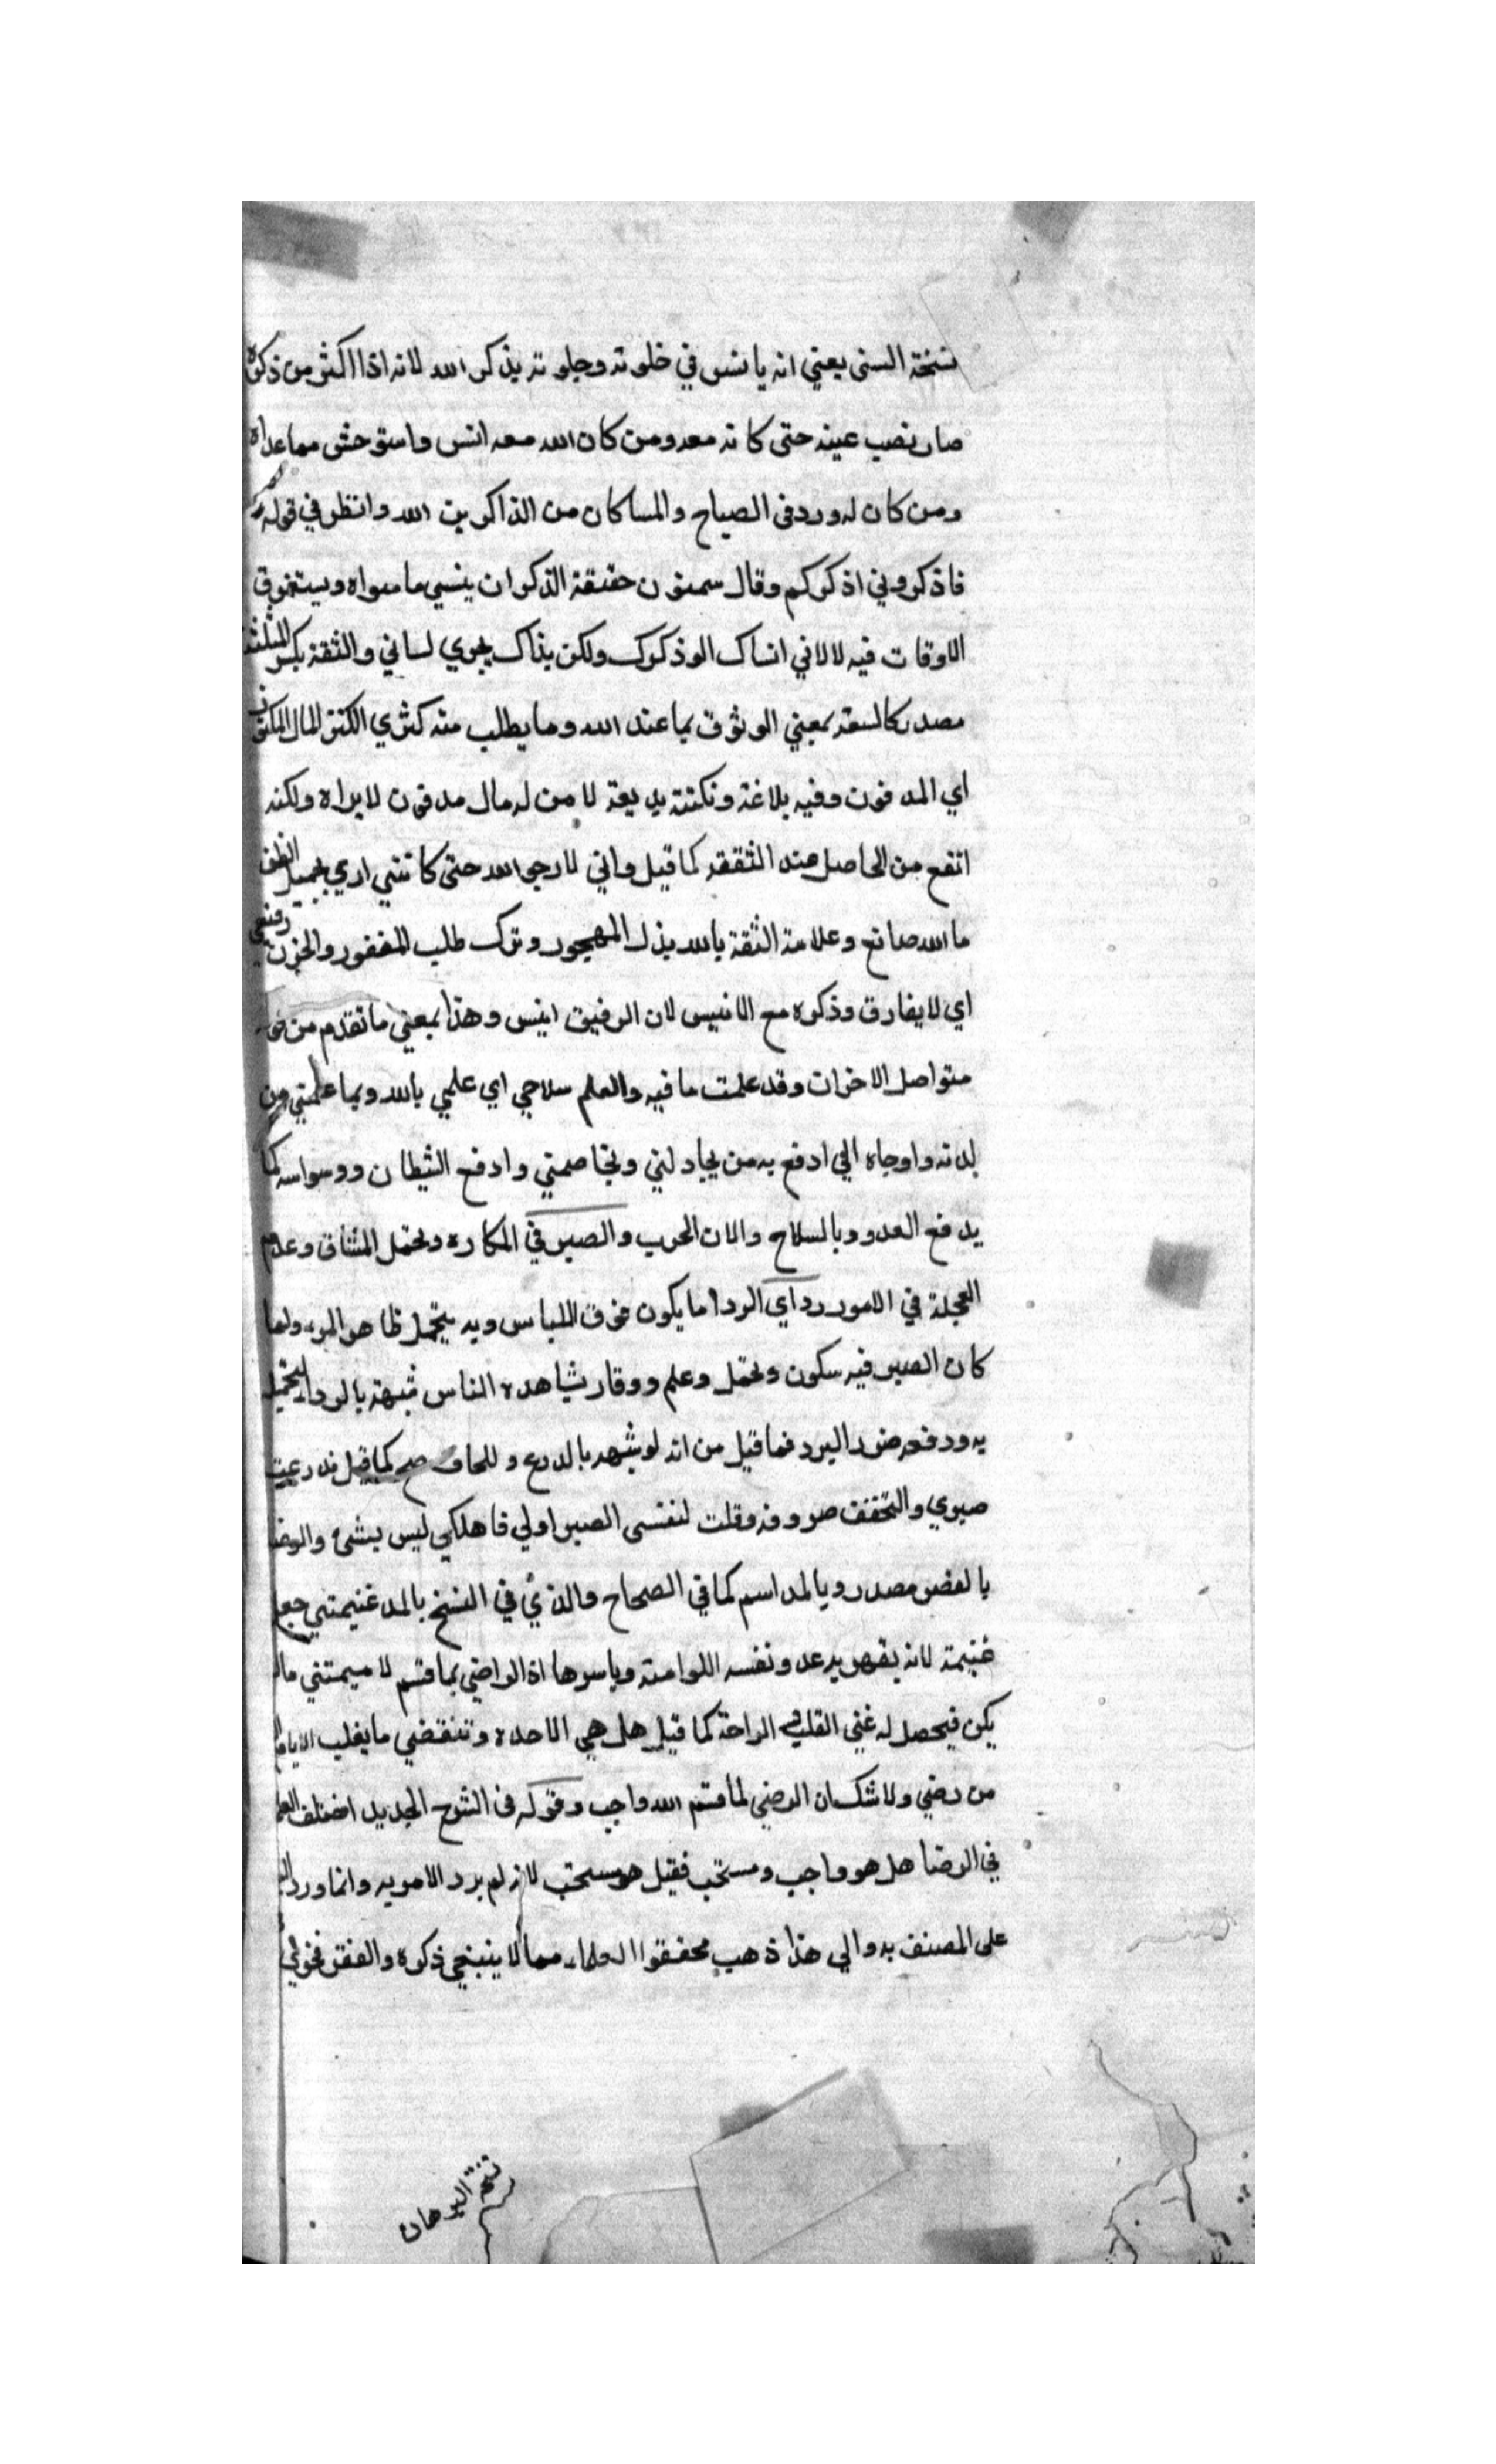 نسخة السنى يعني انه يانس في خلوته وجلوته بذكر الله لانه اذا اكثر من ذكره
صار نصب عينه حتى كانه معه ومن كان الله معه انس واستوحش مما عداه
ومن كان له ورد فى الصباح والمسا كان من الذاكرين الله وانظر في قوله
فاذكروني اذكركم وقال سمنون حقيقة الذكر ان ينسي ما سواه ويستغرق
الاوقات فيه لا لاني انساك الوذكرك ولكن بذاك يجري لساني والثقة بكسر المثلثة
مصدر كالسعة بمعني الوثوق بما عند الله وما يطلب منه كنزي الكنز المال المكنون
اي المدفون وفيه بلاغة ونكتة بديعة لا من له مال مدفون لا يراه ولكنه
انفع من الحاصل عند الثقة كما قيل واني لارجو الله حتى كانني اري بجميل الظن
ما الله صانع وعلامة الثقة بالله بذل المهجور وترك طلب المفقور والحزن رفيقي
اي لا يفارق وذكره مع الانيس لان الرفيق انيس وهذا بمعني ما تقدم من
متواصل الاحزان وقد علمت ما فيه والعلم سلاحي اي علمي بالله وبما علمتي من
لدنه واوحاه الي ادفع به من يجادلني ويخاصمني وادفع الشيطان ووسواسه كما
يدفع العدو وبالسلاح والات الحرب والصبر في المكاره وتحمل المشاق وعدم
العجلة في الامور رداي الردا ما يكون فوق اللباس وبه يتجمل ظاهر المرء ولما
كان الصبر فيه سكون وتحمل وعلم ووقار يشاهده الناس شبهه بالرداء لتجميل
به ودفعه ضرر البرد فما قيل من انه لو شبهه بالدرع واللحاف صح كما قيل تدرعت
صبري والتحفت صروفه وقلت لنفسى الصبر اولي فاهلكي ليس بشئ والرضا
بالقصر مصدر وبالمد اسم كما في الصحاح والذي في النسخ بالمد غنيمتي جعل
غنيمة لانه يقهر به عدو نفسه اللوامة وياسرها اذ الراضي بما قسم لا يتمني ما لم
يكن فيحصل له غني القلب والراحة كما قيل هل هي الا مده وتنقضي ما يغلب الايام الا
من رضي ولا شك ان الرضي لما قسم الله واجب وقوله فى الشرح الجديد اختلف العلما
في الرضا هل هو واجب ومستحب فقيل هو مستحب لانه لم يرد الامر به وانما ورد
على المصنف به والي هذا ذهب محققوا العلماء مما لا ينبغي ذكره والفقر فخري
نسخة البرهان